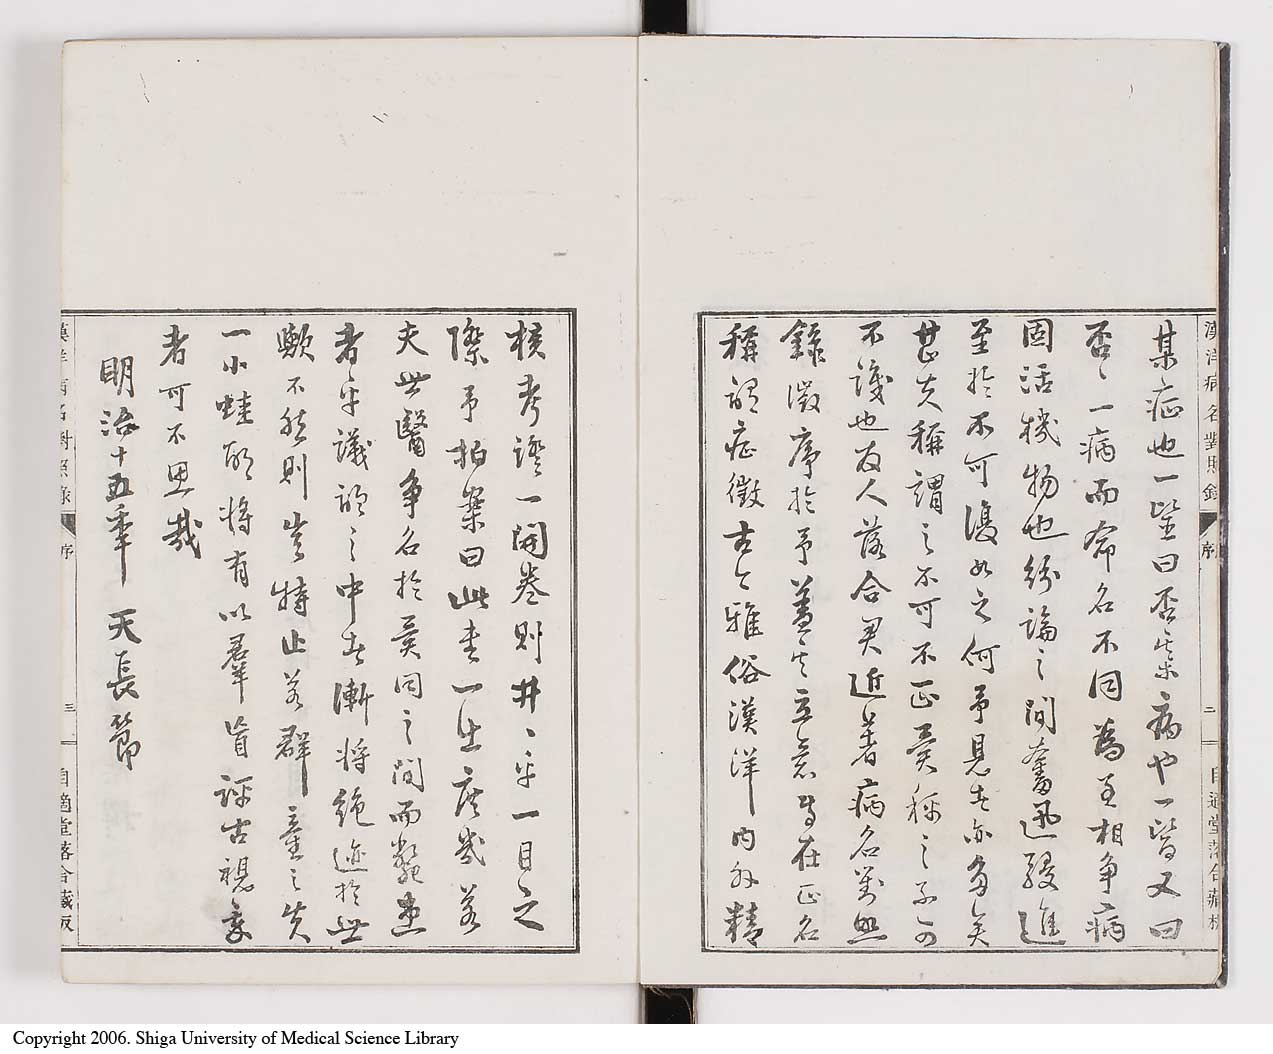 漢洋病名對照錄
序
二
自適堂落合藏板
某症也一毉曰否某病也一皆又曰
否〻一病而命名不同為互相争病
固活機物也紛論之間奮迅驟進
至於不可復如之何予見者亦多矣
甚矣稱謂之不可不正異称之不可
不議也友人落合君近著病名對照
錄徵序於予蓋其立意專在正名
稱謂症徵古今雅俗漢洋内外精
核考證一開卷則井〻乎一目之
際予拍案曰此書一出庶幾若
夫世醫争名於異同之間而斃患
者乎議論之中者漸將絶迹於世
歟不然則豈特止若群童之失
一小蛙郤將有以羣盲評古視象
者可不思哉
明治十五季天長節
漢洋病名對照錄
序
三
自適堂落合藏板
Copyright 2006. Shiga University of Medical Science Library